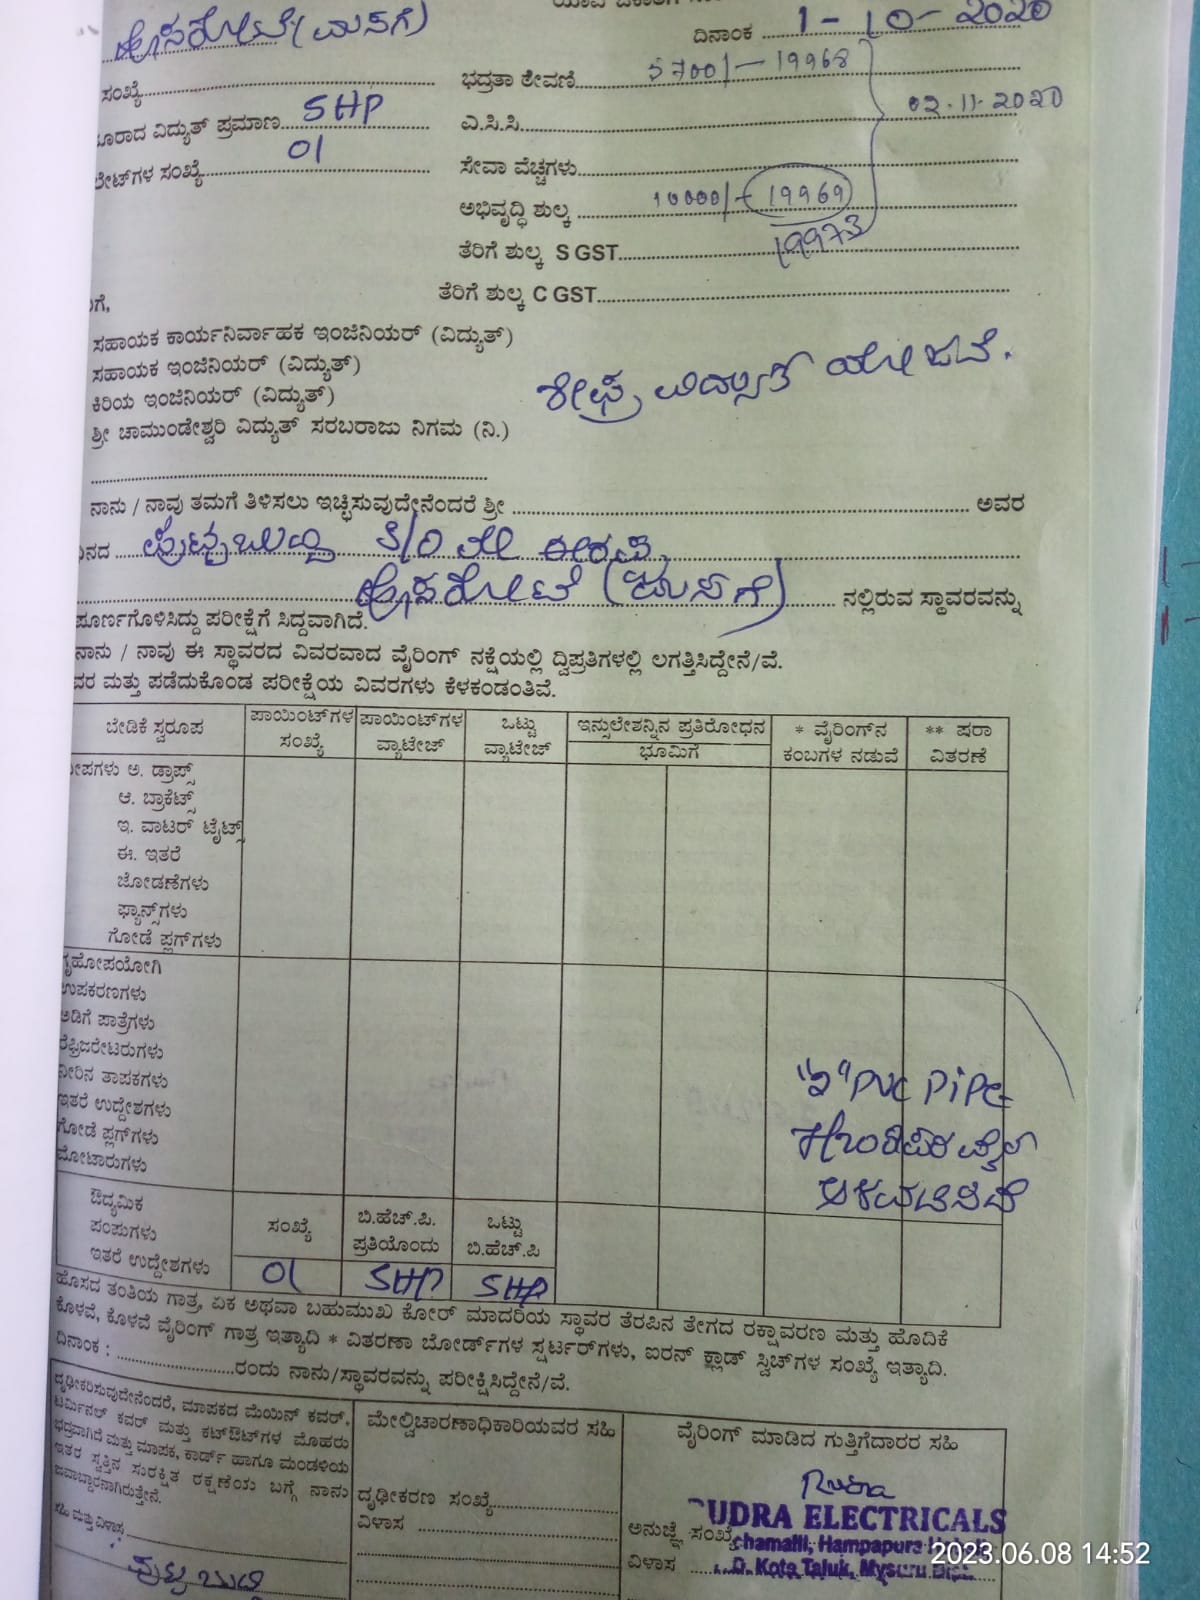 ಹೊಸಕೋಟೆ (ಮಸಗೆ)
ದಿನಾಂಕ 1-10-2020
ಸಂಖ್ಯೆ
ಭದ್ರತಾ ಠೇವಣಿ 5700/- 19968
02.11.2020
ವಿದ್ಯುತ್ ಪ್ರಮಾಣ 5HP
ಎ.ಸಿ.ಸಿ.
ಸಂಖ್ಯೆ 01
ಸೇವಾ ವೆಚ್ಚಗಳು
ಅಭಿವೃದ್ಧಿ ಶುಲ್ಕ 10000/- 19969
19973
ತೆರಿಗೆ ಶುಲ್ಕ S GST
ತೆರಿಗೆ ಶುಲ್ಕ C GST
ಗೆ,
ಸಹಾಯಕ ಕಾರ್ಯನಿರ್ವಾಹಕ ಇಂಜಿನಿಯರ್ (ವಿದ್ಯುತ್)
ಸಹಾಯಕ ಇಂಜಿನಿಯರ್ (ವಿದ್ಯುತ್)
ಕಿರಿಯ ಇಂಜಿನಿಯರ್ (ವಿದ್ಯುತ್)
ಶೀಘ್ರ ವಿದ್ಯುತ್ ಯೋಜನೆ.
ಶ್ರೀ ಚಾಮುಂಡೇಶ್ವರಿ ವಿದ್ಯುತ್ ಸರಬರಾಜು ನಿಗಮ (ನಿ.)
ನಾನು / ನಾವು ತಮಗೆ ತಿಳಿಸಲು ಇಚ್ಛಿಸುವುದೇನೆಂದರೆ ಶ್ರೀ ಅವರ
ಪುಟ್ಟಬುದ್ದಿ S/O ಲೇ
ಹೊಸಕೋಟೆ (ಮಸಗೆ) ನಲ್ಲಿರುವ ಸ್ಥಾವರವನ್ನು
ಪೂರ್ಣಗೊಳಿಸಿದ್ದು ಪರೀಕ್ಷೆಗೆ ಸಿದ್ದವಾಗಿದೆ.
ನಾನು / ನಾವು ಈ ಸ್ಥಾವರದ ವಿವರವಾದ ವೈರಿಂಗ್ ನಕ್ಷೆಯಲ್ಲಿ ದ್ವಿಪ್ರತಿಗಳಲ್ಲಿ ಲಗತ್ತಿಸಿದ್ದೇನೆ/ವೆ.
ಮತ್ತು ಪಡೆದುಕೊಂಡ ಪರೀಕ್ಷೆಯ ವಿವರಗಳು ಕೆಳಕಂಡಂತಿವೆ.
ಬೇಡಿಕೆ ಸ್ವರೂಪ
ಪಾಯಿಂಟ್‌ಗಳ ಸಂಖ್ಯೆ
ಪಾಯಿಂಟ್‌ಗಳ ವ್ಯಾಟೇಜ್
ಒಟ್ಟು ವ್ಯಾಟೇಜ್
ಇನ್ಸುಲೇಶನ್ನಿನ ಪ್ರತಿರೋಧನ
ಭೂಮಿಗೆ
* ವೈರಿಂಗ್‌ನ ಕಂಬಗಳ ನಡುವೆ
** ಷರಾ ವಿತರಣೆ
ಅ. ಡ್ರಾಪ್ಸ್
ಆ. ಬ್ರಾಕೆಟ್ಸ್
ಇ. ವಾಟರ್ ಟೈಟ್ಸ್
ಈ. ಇತರೆ
ಜೋಡಣೆಗಳು
ಫ್ಯಾನ್ಸ್‌ಗಳು
ಗೋಡೆ ಪ್ಲಗ್‌ಗಳು
ಗೃಹೋಪಯೋಗಿ
ಉಪಕರಣಗಳು
ಅಡಿಗೆ ಪಾತ್ರೆಗಳು
ರೆಫ್ರಿಜರೇಟರುಗಳು
ನೀರಿನ ತಾಪಕಗಳು
ಇತರೆ ಉದ್ದೇಶಗಳು
ಗೋಡೆ ಪ್ಲಗ್‌ಗಳು
ಮೋಟಾರುಗಳು
"2" PVC PIPE
ಅಳವಡಿಸಿದೆ
ಔದ್ಯಮಿಕ
ಪಂಪುಗಳು
ಇತರೆ ಉದ್ದೇಶಗಳು
ಸಂಖ್ಯೆ
ಬಿ.ಹೆಚ್.ಪಿ. ಪ್ರತಿಯೊಂದು
ಒಟ್ಟು ಬಿ.ಹೆಚ್.ಪಿ
01 5HP 5HP
ಹೊಸದ ತಂತಿಯ ಗಾತ್ರ, ಏಕ ಅಥವಾ ಬಹುಮುಖ ಕೋರ್ ಮಾದರಿಯ ಸ್ಥಾವರ ತೆರಪಿನ ತೇಗದ ರಕ್ಷಾವರಣ ಮತ್ತು ಹೊದಿಕೆ
ಕೊಳವೆ, ಕೊಳವೆ ವೈರಿಂಗ್ ಗಾತ್ರ ಇತ್ಯಾದಿ * ವಿತರಣಾ ಬೋರ್ಡ್‌ಗಳ ಸ್ಟರ್ಟರ್‌ಗಳು, ಐರನ್ ಕ್ಲಾಡ್ ಸ್ವಿಚ್‌ಗಳ ಸಂಖ್ಯೆ ಇತ್ಯಾದಿ.
ದಿನಾಂಕ : ರಂದು ನಾನು/ಸ್ಥಾವರವನ್ನು ಪರೀಕ್ಷಿಸಿದ್ದೇನೆ/ವೆ.
ದೃಢೀಕರಿಸುವುದೇನೆಂದರೆ, ಮಾಪಕದ ಮೆಯಿನ್ ಕವರ್,
ಟರ್ಮಿನಲ್ ಕವರ್ ಮತ್ತು ಕಟ್‌ಔಟ್‌ಗಳ ಮೊಹರು
ಭದ್ರವಾಗಿದೆ ಮತ್ತು ಮಾಪಕ, ಕಾರ್ಡ್ ಹಾಗೂ ಮಂಡಳಿಯ
ಇತರ ಸ್ವತ್ತಿನ ಸುರಕ್ಷಿತ ರಕ್ಷಣೆಯ ಬಗ್ಗೆ ನಾನು
ಜವಾಬ್ದಾರನಾಗಿರುತ್ತೇನೆ.
ಸಹಿ ಮತ್ತು ವಿಳಾಸ
ಪುಟ್ಟಬುದ್ದಿ
ಮೇಲ್ವಿಚಾರಣಾಧಿಕಾರಿಯವರ ಸಹಿ
ದೃಢೀಕರಣ ಸಂಖ್ಯೆ
ವಿಳಾಸ
ವೈರಿಂಗ್ ಮಾಡಿದ ಗುತ್ತಿಗೆದಾರರ ಸಹಿ
Rudra
RUDRA ELECTRICALS
ಅನುಜ್ಞೆ ಸಂಖ್ಯೆ
chamalli, Hampapura Hobli
ವಿಳಾಸ
.D. Kote Taluk, Mysuru Dist.
2023.06.08 14:52